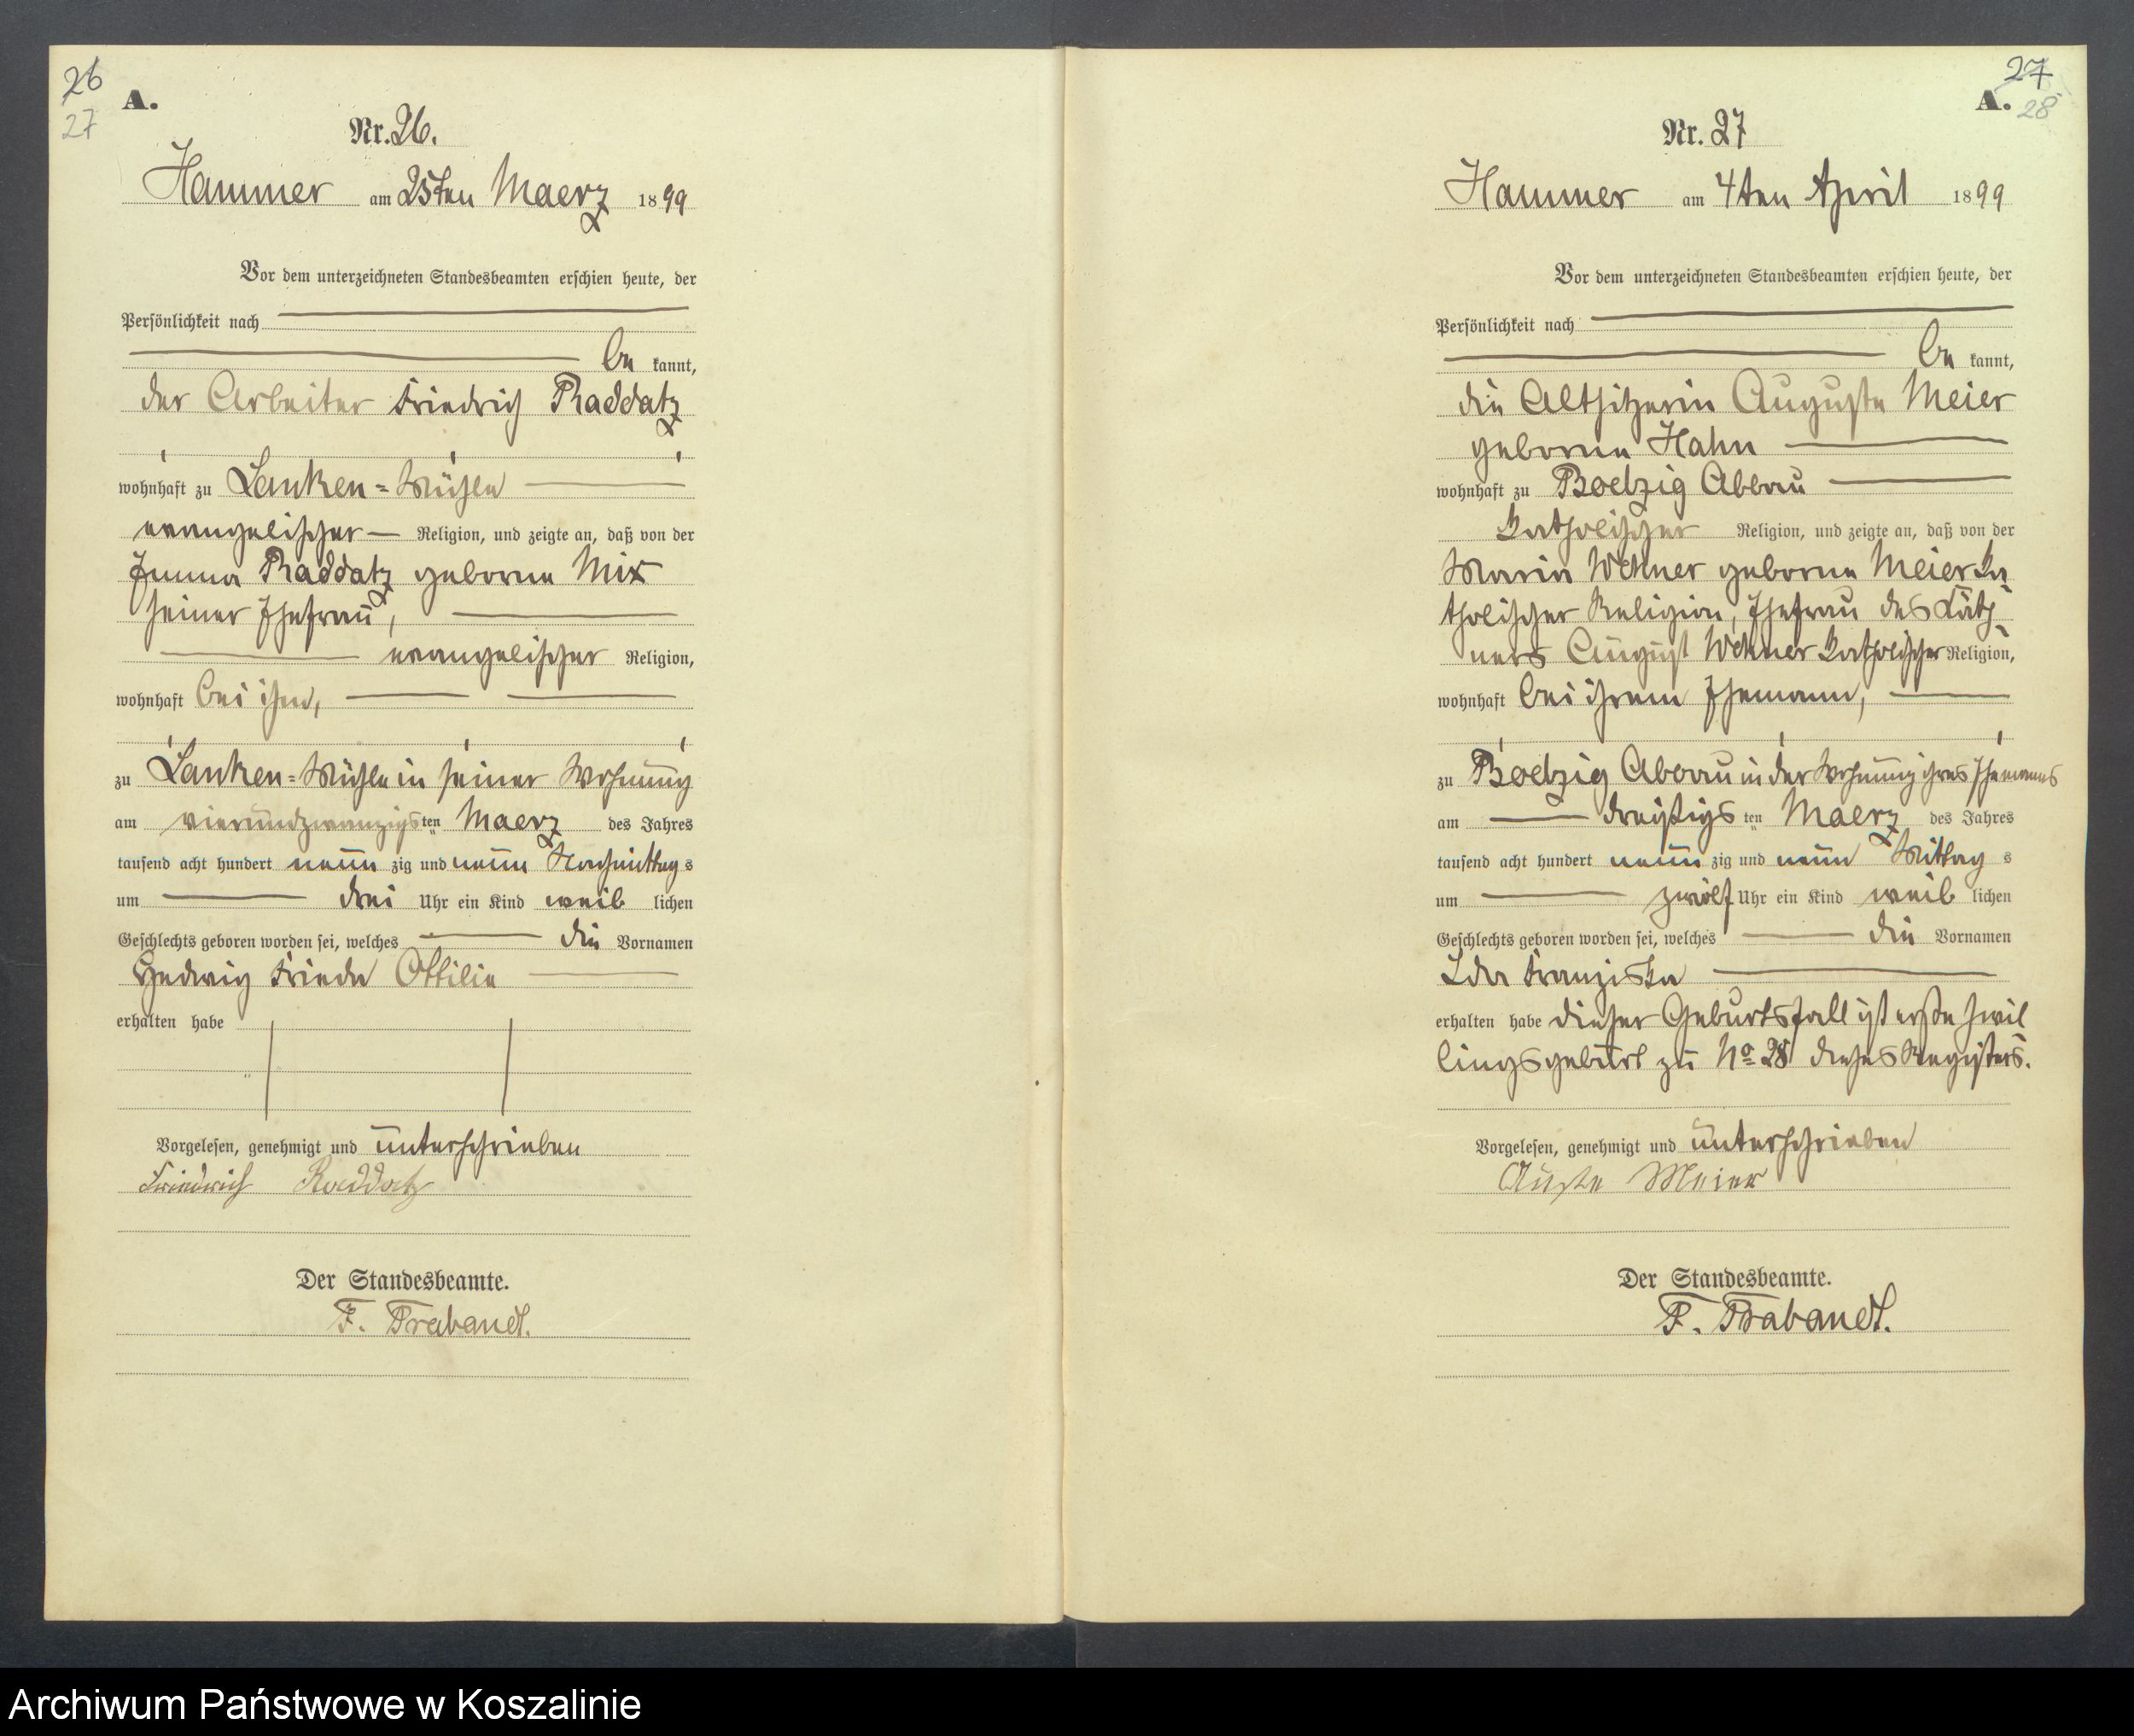 26
27
A.
Nr. 26.
Hammer am 25ten Maerz 1899
Vor dem unterzeichneten Standesbeamten erschien heute, der
Persönlichkeit nach
be kannt,
der Arbeiter Friedrich Raddatz
wohnhaft zu Lanken-Mühle
evangelischer Religion, und zeigte an, daß von der
Emma Raddatz geborne Mix
seiner Ehefrau,
evangelischer Religion,
wohnhaft bei ihm,
zu Lanken-Mühle in seiner Wohnung
am vierundzwanzigs ten Maerz des Jahres
tausend acht hundert neun zig und neun Nachmittag s
um drei Uhr ein Kind weib lichen
Geschlechts geboren worden sei, welches die Vornamen
Hedwig Frieda Ottilie
erhalten habe
Vorgelesen, genehmigt und unterschrieben
Friedrich Raddatz
Der Standesbeamte.
F. Trabandt.
27
A. 28
Nr. 27
Hammer am 4ten April 1899
Vor dem unterzeichneten Standesbeamten erschien heute, der
Persönlichkeit nach
be kannt,
die Altsitzerin Auguste Meier
geborne Hahn
wohnhaft zu Boelzig Abbau
katholischer Religion, und zeigte an, daß von der
Maria Wehner geborne Meier ka-
tholischer Religion, Ehefrau des Käth-
ners August Wehner katholischer Religion,
wohnhaft bei ihrem Ehemann,
zu Boelzig Abbau in der Wohnung ihres Ehemanns
am dreißigs ten Maerz des Jahres
tausend acht hundert neun zig und neun Mittag s
um zwölf Uhr ein Kind weib lichen
Geschlechts geboren worden sei, welches die Vornamen
Ida Franziska
erhalten habe dieser Geburtsfall ist erste Zwil
lingsgeburt zu No 28 dieses Registers.
Vorgelesen, genehmigt und unterschrieben
Auste Meier
Der Standesbeamte.
F. Trabandt.
Archiwum Państwowe w Koszalinie